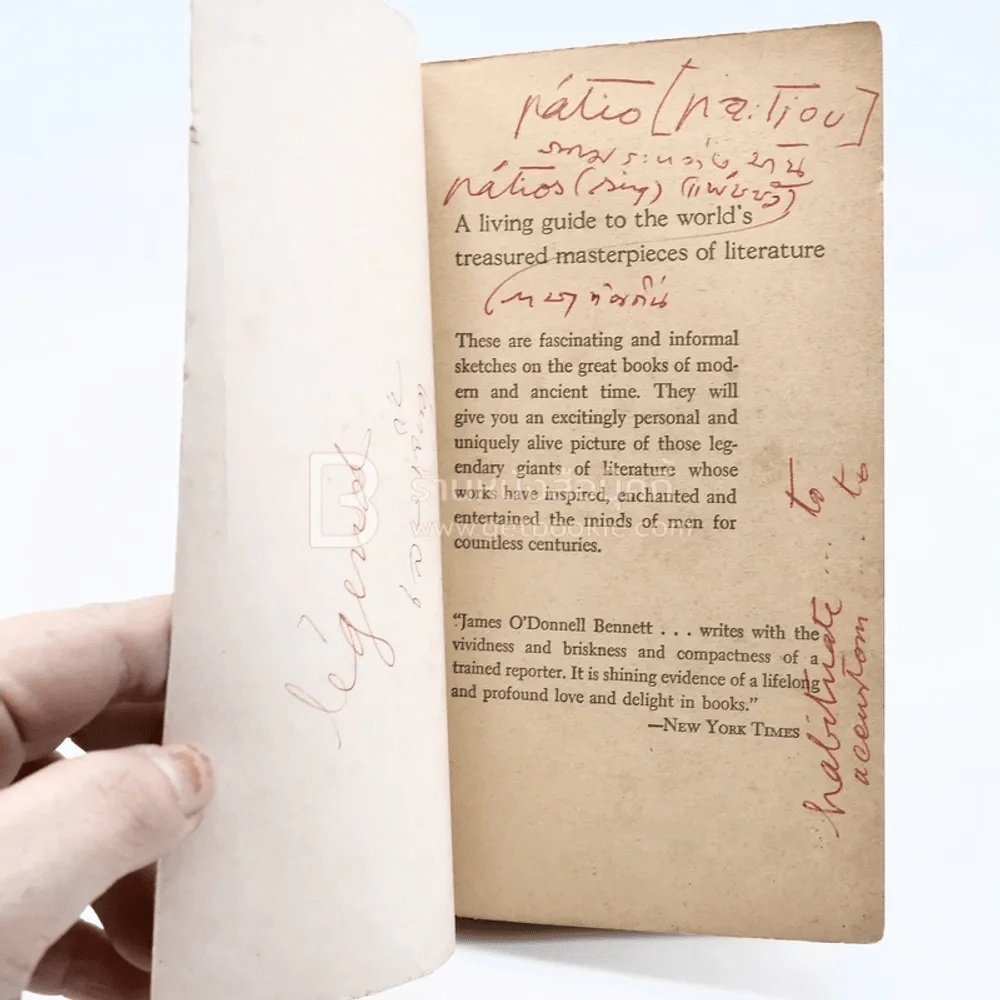 légend
pátio
pátios
A living guide to the world's
treasured masterpieces of literature
These are fascinating and informal
sketches on the great books of mod-
ern and ancient time. They will
give you an excitingly personal and
uniquely alive picture of those leg-
endary giants of literature whose
works have inspired, enchanted and
entertained the minds of men for
countless centuries.
"James O'Donnell Bennett . . . writes with the
vividness and briskness and compactness of a
trained reporter. It is shining evidence of a lifelong
and profound love and delight in books."
—NEW YORK TIMES
habituate ... to
accustom ... to
ร้านหนังสือบุ๊คกี้
www.getbookie.com